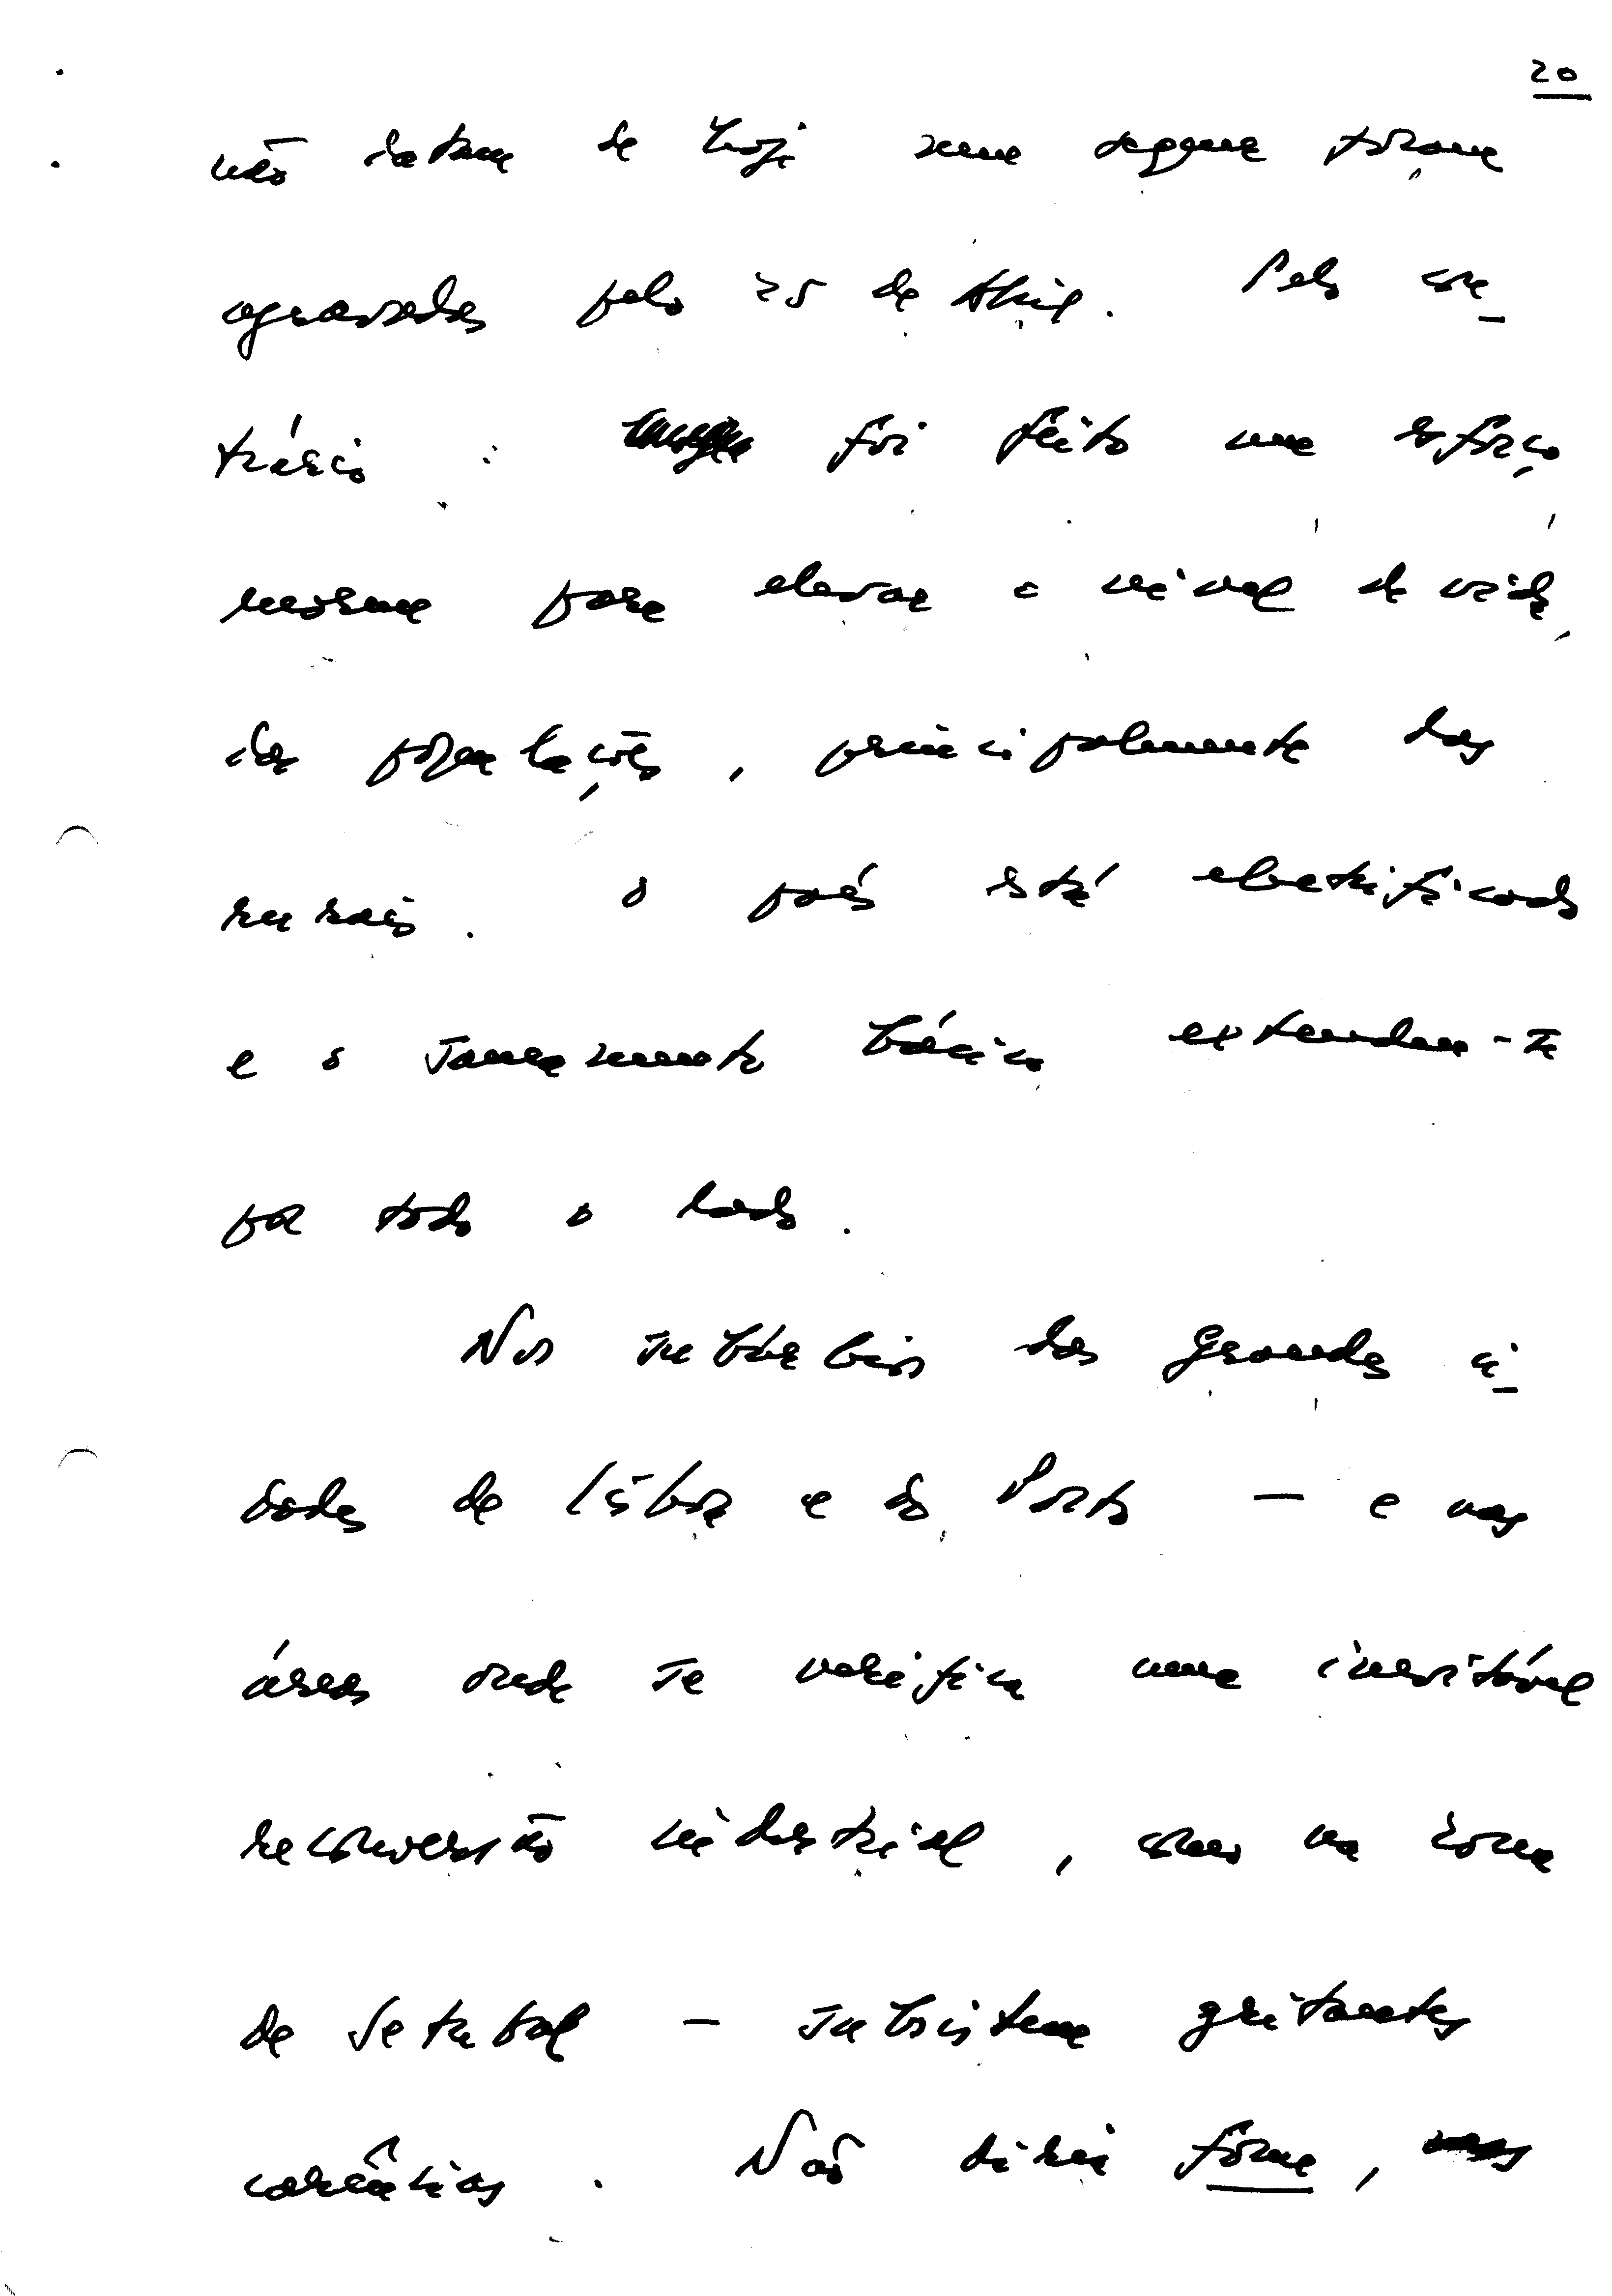 20
não datam de hoje nem sequer foram
agravadas pelo 25 de Abril. Pelo con-
trário: foi feito um esforço
enorme para elevar o nível de vida
das populações, principalmente das
rurais. O país está electrificado
e o saneamento básico extendeu-se
por todo o lado.
Nos subúrbios das grandes ci-
dades de Lisboa e do Porto — e nas
áreas onde se verifica uma inevitável
reconversão industrial, como na zona
de Setubal — subsistem gritantes
carências. Não direi fome,